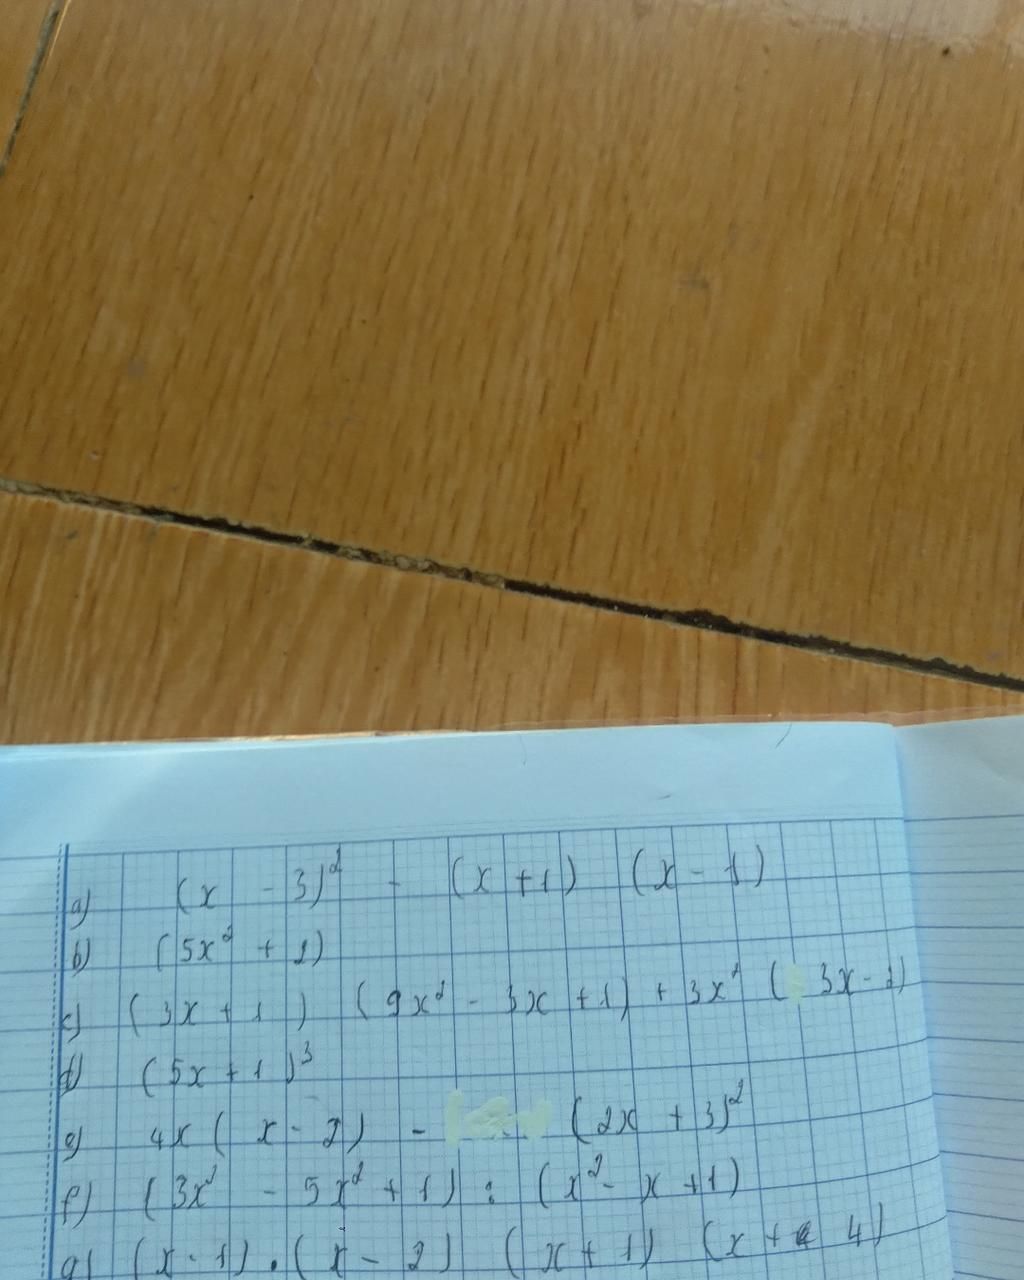 a) (x - 3)² - (x + 1) (x - 1)
b) (5x² + 2)
c) (3x + 1) (9x² - 3x + 1) + 3x² (3x - 2)
d) (5x + 1)³
e) 4x (x - 2) - (2x + 3)²
f) (3x² - 5x² + 1) : (x² - x + 1)
g) (x - 1) . (x - 2) (x + 1) (x + 4)